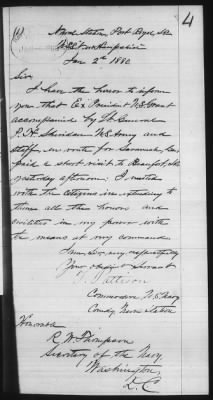 4
Naval Station, Port Royal S.C.
Jan 2d 1880
Sir
I have the honor to inform
you that Ex President U.S. Grant
accompanied by Lt. General
P. H. Sheridan U.S. Army and
staff, en route for Savannah, Ga.
paid a short visit to Beaufort, S.C.
yesterday afternoon; I united
with the citizens in extending to
them all the honors and
civilities in my power with
the means at my command
I am Sir, very respectfully
Your obedient servant
T. Pattison
Commodore U.S. Navy
Comdg Naval Station
Honorable
R. W. Thompson
Secretary of the Navy
Washington
D.C.